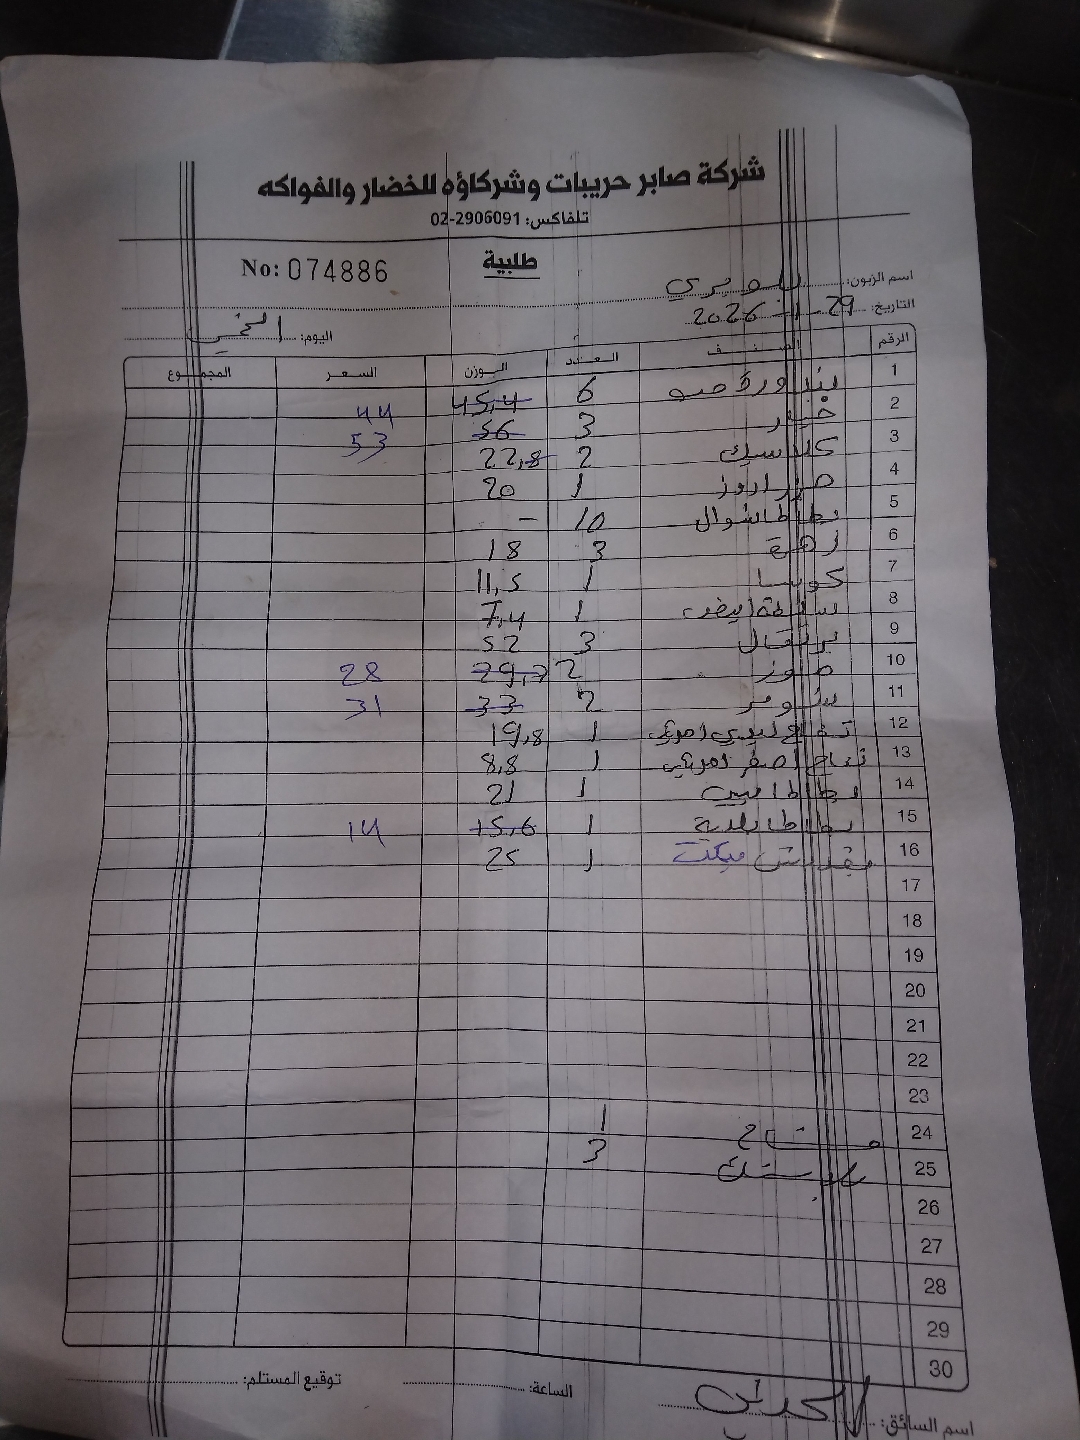 شركة صابر حريبات وشركاؤه للخضار والفواكه
تلفاكس: 02-2906091
طلبية
No: 074886
اسم الزبون:
التاريخ: 29-1-2026
اليوم: الخميس
الرقم الصنف العدد الوزن السعر المجموع
1 بندورة 6 45,4 44
2 خيار 3 56 53
3 كلاسيك 2 22,8
4 1 20
5 بطاطا شوال 10 -
6 زهرة 3 18
7 كوسا 1 11,5
8 1 7,4
9 برتقال 3 52
10 موز 2 29,2 28
11 2 33 31
12 تفاح 1 19,8
13 تفاح اصفر 1 8,8
14 بطاطا 1 21
15 بطاطا 1 15,6 14
16 بقدونس 1 25
17
18
19
20
21
22
23
24 1
25 3
26
27
28
29
30
اسم السائق:
الساعة:
توقيع المستلم: